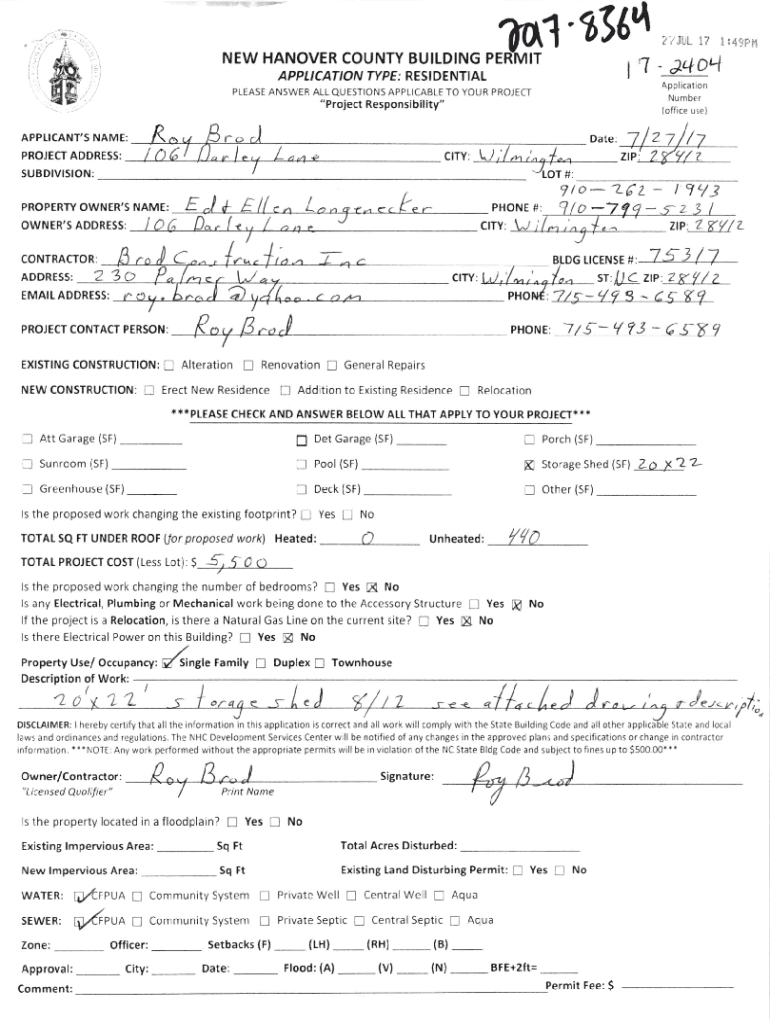 2017-8364
27 JUL 17 1:49PM
NEW HANOVER COUNTY BUILDING PERMIT
17-2404
APPLICATION TYPE: RESIDENTIAL
PLEASE ANSWER ALL QUESTIONS APPLICABLE TO YOUR PROJECT
"Project Responsibility"
Application
Number
(office use)
APPLICANT'S NAME: Roy Brod Date: 7/27/17
PROJECT ADDRESS: 106 Darley Lane CITY: Wilmington ZIP: 28412
SUBDIVISION: LOT #:
910-262-1943
PROPERTY OWNER'S NAME: Ed & Ellen Longenecker PHONE #: 910-799-5231
OWNER'S ADDRESS: 106 Darley Lane CITY: Wilmington ZIP: 28412
CONTRACTOR: Brod Construction Inc BLDG LICENSE #: 75317
ADDRESS: 230 Palmer Way CITY: Wilmington ST: NC ZIP: 28412
EMAIL ADDRESS: roy.brod@yahoo.com PHONE: 715-493-6589
PROJECT CONTACT PERSON: Roy Brod PHONE: 715-493-6589
EXISTING CONSTRUCTION: ☐ Alteration ☐ Renovation ☐ General Repairs
NEW CONSTRUCTION: ☐ Erect New Residence ☐ Addition to Existing Residence ☐ Relocation
***PLEASE CHECK AND ANSWER BELOW ALL THAT APPLY TO YOUR PROJECT***
☐ Att Garage (SF) ☐ Det Garage (SF) ☐ Porch (SF)
☐ Sunroom (SF) ☐ Pool (SF) ☒ Storage Shed (SF) 20 x 22
☐ Greenhouse (SF) ☐ Deck (SF) ☐ Other (SF)
Is the proposed work changing the existing footprint? ☐ Yes ☐ No
TOTAL SQ FT UNDER ROOF (for proposed work) Heated: 0 Unheated: 440
TOTAL PROJECT COST (Less Lot): $ 5,500
Is the proposed work changing the number of bedrooms? ☐ Yes ☒ No
Is any Electrical, Plumbing or Mechanical work being done to the Accessory Structure ☐ Yes ☒ No
If the project is a Relocation, is there a Natural Gas Line on the current site? ☐ Yes ☒ No
Is there Electrical Power on this Building? ☐ Yes ☒ No
Property Use/ Occupancy: ☑ Single Family ☐ Duplex ☐ Townhouse
Description of Work:
20'x22' storage shed 8/12 see attached drawing & description
DISCLAIMER: I hereby certify that all the information in this application is correct and all work will comply with the State Building Code and all other applicable State and local
laws and ordinances and regulations. The NHC Development Services Center will be notified of any changes in the approved plans and specifications or change in contractor
information. ***NOTE: Any work performed without the appropriate permits will be in violation of the NC State Bldg Code and subject to fines up to $500.00***
Owner/Contractor: Roy Brod Signature: Roy Brod
"Licensed Qualifier" Print Name
Is the property located in a floodplain? ☐ Yes ☐ No
Existing Impervious Area: Sq Ft Total Acres Disturbed:
New Impervious Area: Sq Ft Existing Land Disturbing Permit: ☐ Yes ☐ No
WATER: ☑ CFPUA ☐ Community System ☐ Private Well ☐ Central Well ☐ Aqua
SEWER: ☑ CFPUA ☐ Community System ☐ Private Septic ☐ Central Septic ☐ Aqua
Zone: Officer: Setbacks (F) (LH) (RH) (B)
Approval: City: Date: Flood: (A) (V) (N) BFE+2ft=
Comment: Permit Fee: $